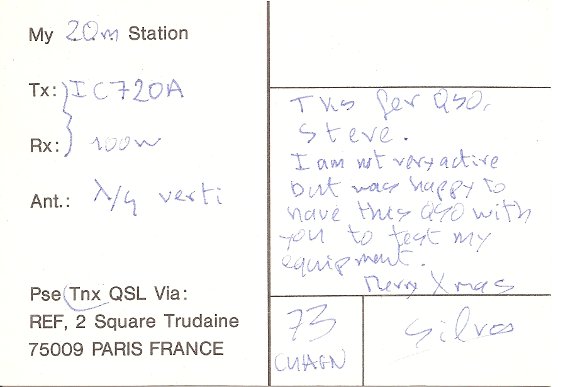 My 20m Station
Tx: IC720A
Rx: 100w
Ant.: λ/4 verti
Pse Tnx QSL Via:
REF, 2 Square Trudaine
75009 PARIS FRANCE
Tks for QSO,
Steve.
I am not very active
but was happy to
have this QSO with
you to test my
equipment.
Merry Xmas
73